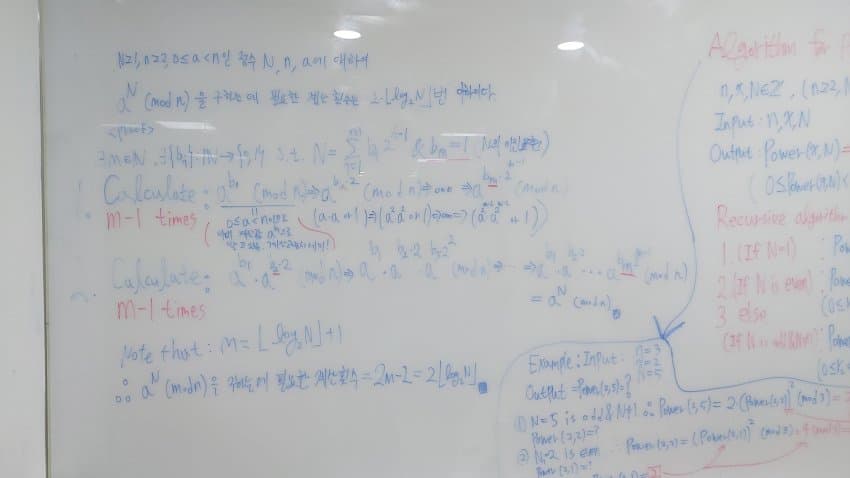 N≥1, n≥2, 0≤a<n인 정수 N, n, a에 대하여
a^N (mod n) 을 구하는 데 필요한 계산 횟수는 2⌊log₂N⌋번 이하이다.
<proof>
∃m∈N, ∃{b_i}: → {0,1} s.t. N = Σ_{i=1}^{m} b_i 2^{i-1} & b_m=1 (N의 이진표현)
1. Calculate: a^{b_1} (mod n) ⇒ a^{b_2·2} (mod n) ⇒ ⋯ ⇒ a^{b_m·2^{m-1}} (mod n)
m-1 times
0≤a<n이므로
2. Calculate: a^{b_1}·a^{b_2·2} (mod n) ⇒ a^{b_1}·a^{b_2·2}·a^{b_3·2^2} (mod n) ⇒ ⋯ ⇒ a^{b_1}·a^{b_2·2}⋯a^{b_m·2^{m-1}} (mod n)
m-1 times
= a^N (mod n).
Note that: m = ⌊log₂N⌋+1
∴ a^N (mod n)을 구하는 데 필요한 계산횟수 = 2m-2 = 2⌊log₂N⌋.
Algorithm for
n, x, N∈Z, (n≥2, N
Input: n, x, N
Output: Power(x,N)=
(0≤Power(x,N)<
Recursive algorithm
1. (If N=1) : Pow
2. (If N is even) : Power
(0≤
3. else
(If N is odd & N≠1) : Power
(0≤
Example: Input: n=3
x=2
N=5
Output = Power(2,5)=?
① N=5 is odd & N≠1 ∴ Power(2,5) = 2·(Power(2,2))² (mod 3) = 2
Power(2,2)=?
② N=2 is even ∴ Power(2,2) = (Power(2,1))² (mod 3) = 4 (mod 3) =
Power(2,1)=?